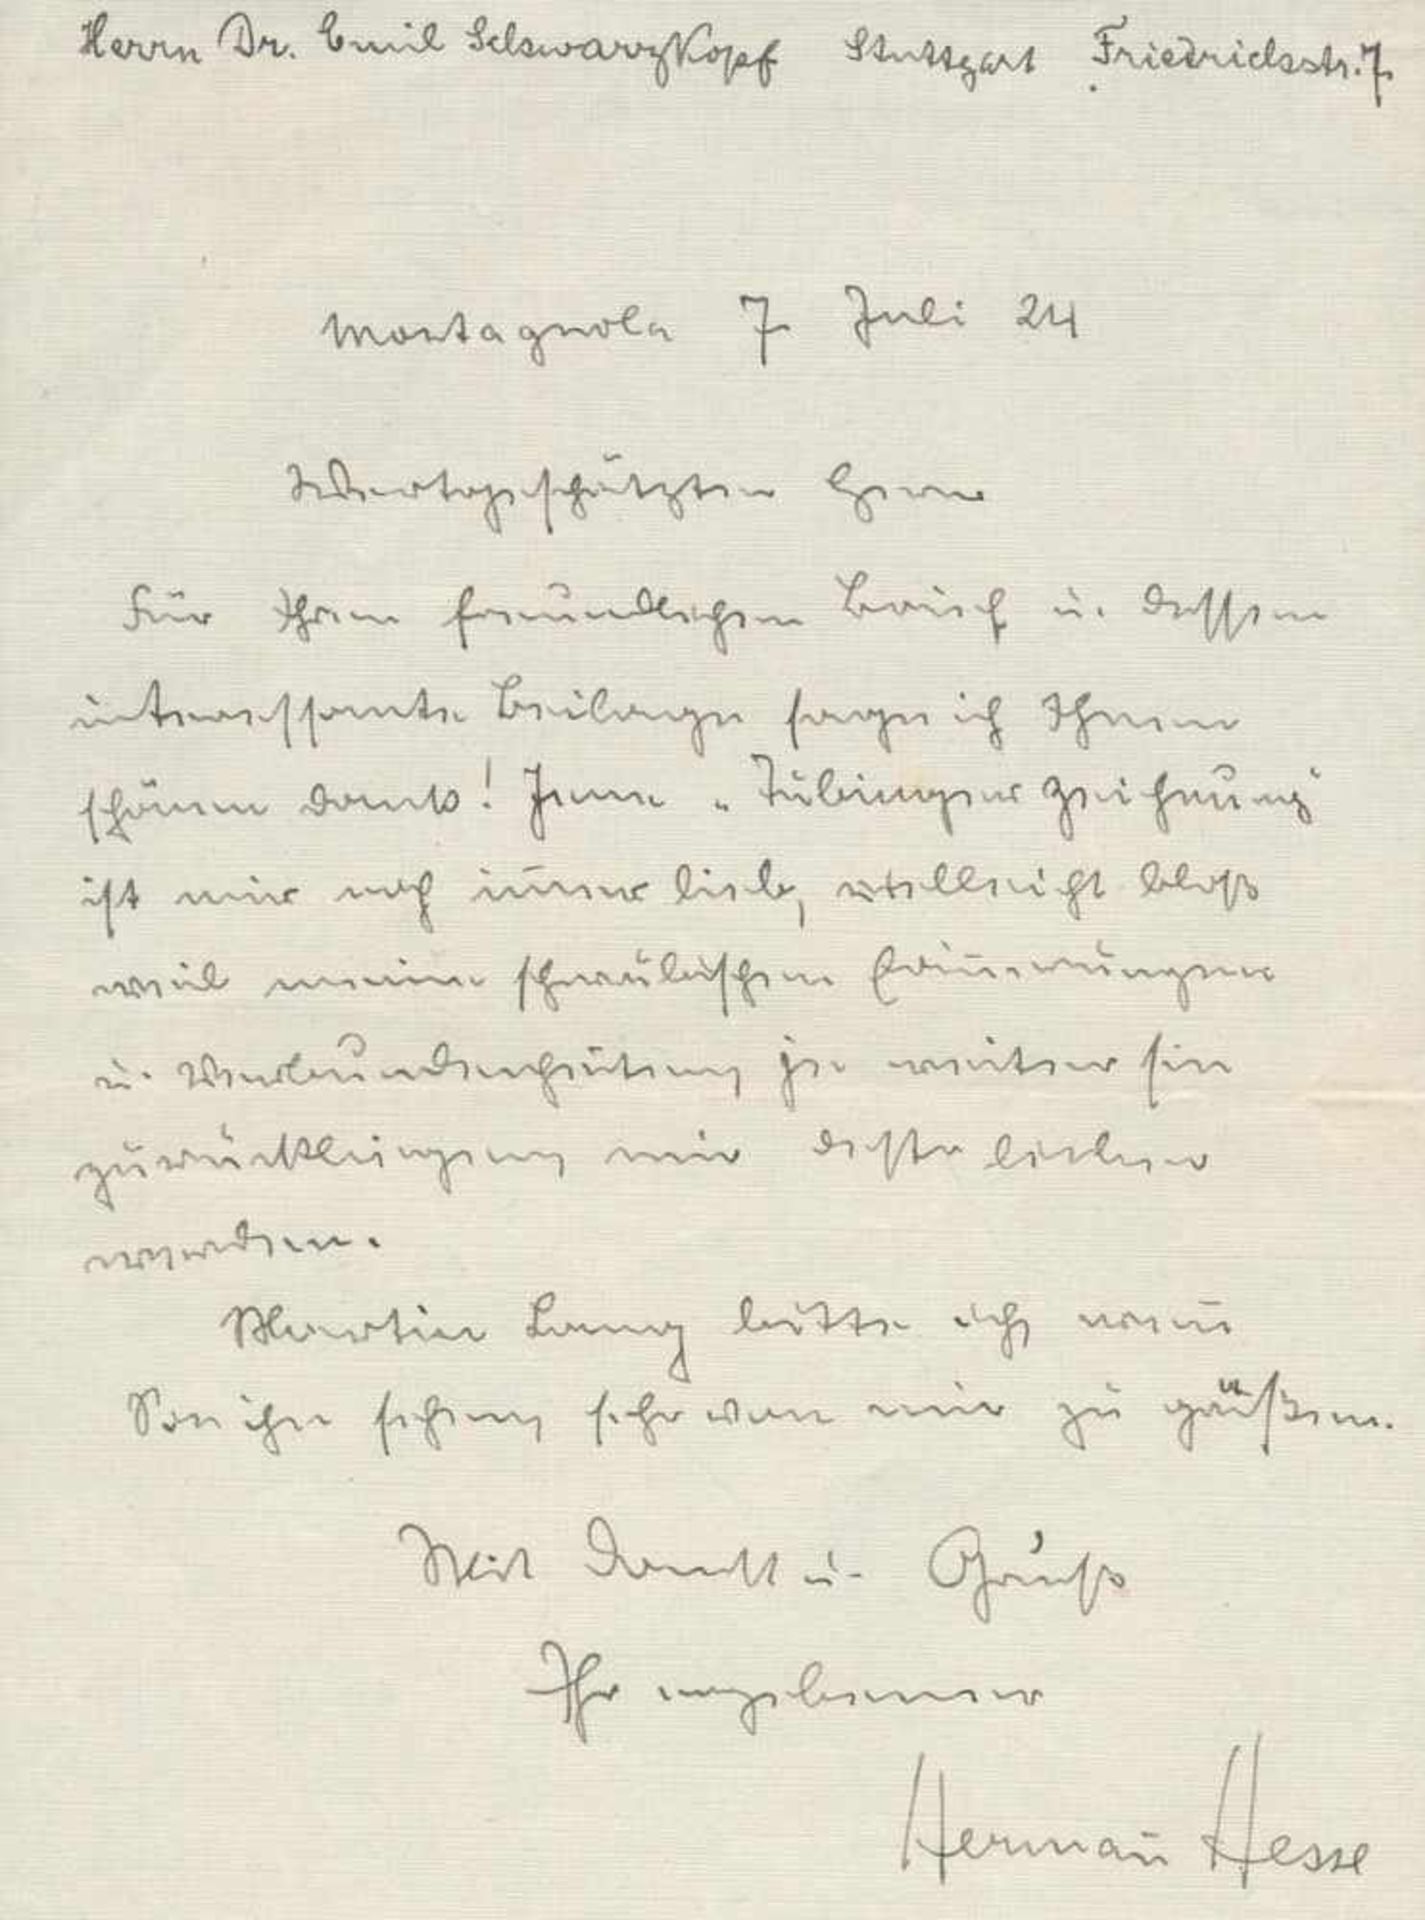 Herrn Dr. Emil Schwarzkopf Stuttgart Friedrichstr. 7
Montagnola 7 Juli 24
Wertgeschätzter Herr
Für Ihren freundlichen Brief u. dessen
interessante Beilage sage ich Ihnen
schönen Dank! Jene „Tübinger Zeichnung“
ist mir noch im̅er lieb, vielleicht bloß
weil meine schwäbischen Erin̅erungen
u. Verbundenheiten, je weiter sie
zurückliegen, mir desto lieber
werden.
Martin Lang bitte ich, wen̅
Sie ihn sehen, sehr von mir zu grüßen.
Mit Dank u. Gruß
Ihr ergebener
Herman̅ Hesse